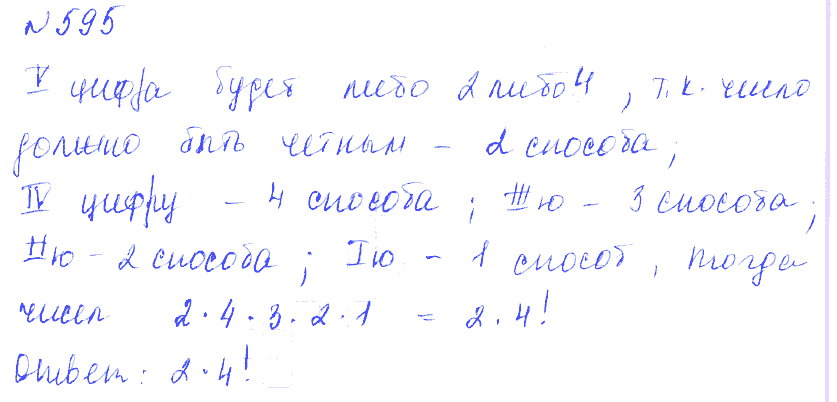 №595
V цифра будет либо 2 либо 4, т.к. число
должно быть четным – 2 способа;
IV цифру – 4 способа; IIIю – 3 способа;
IIю – 2 способа; Iю – 1 способ, тогда
чисел 2·4·3·2·1 = 2·4!
Ответ: 2·4!